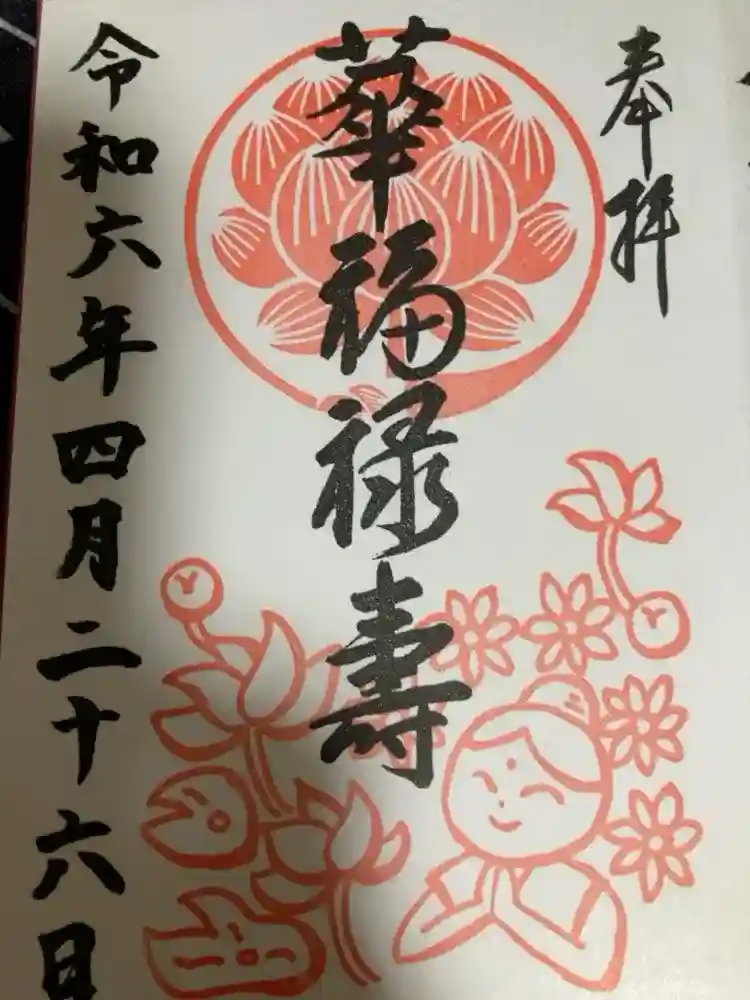 奉拝
華福禄寿
令和六年四月二十六日